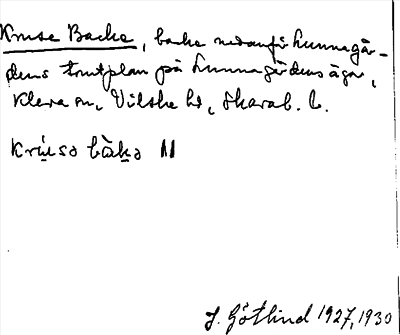 Kruse Backe, backe nedanför Lunnagår-
dens tomtplan på Lunnagårdens ägor,
Kleva sn, Vilske hd, Skarab. l.
Krúsə bàkə II
J. Götlind 1927, 1930